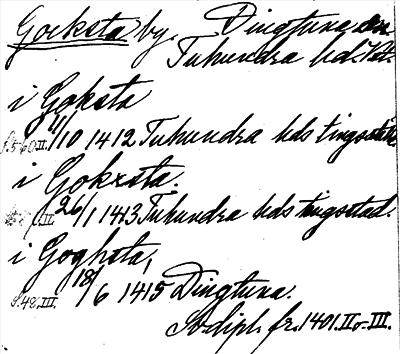 Gorksta by. Dingtuna sn
Tuhundra hd. Vstm.
i Goksta
S. 560 II. 11/10 1412 Tuhundra hds tingsställe
i Gokxsta.
II. 26/1 1413 Tuhundra hds tingsstad.
i Goghsta,
S. 48. III. 18/6 1415 Dingtuna.
Sv. dipl. fr. 1401. II o. III.